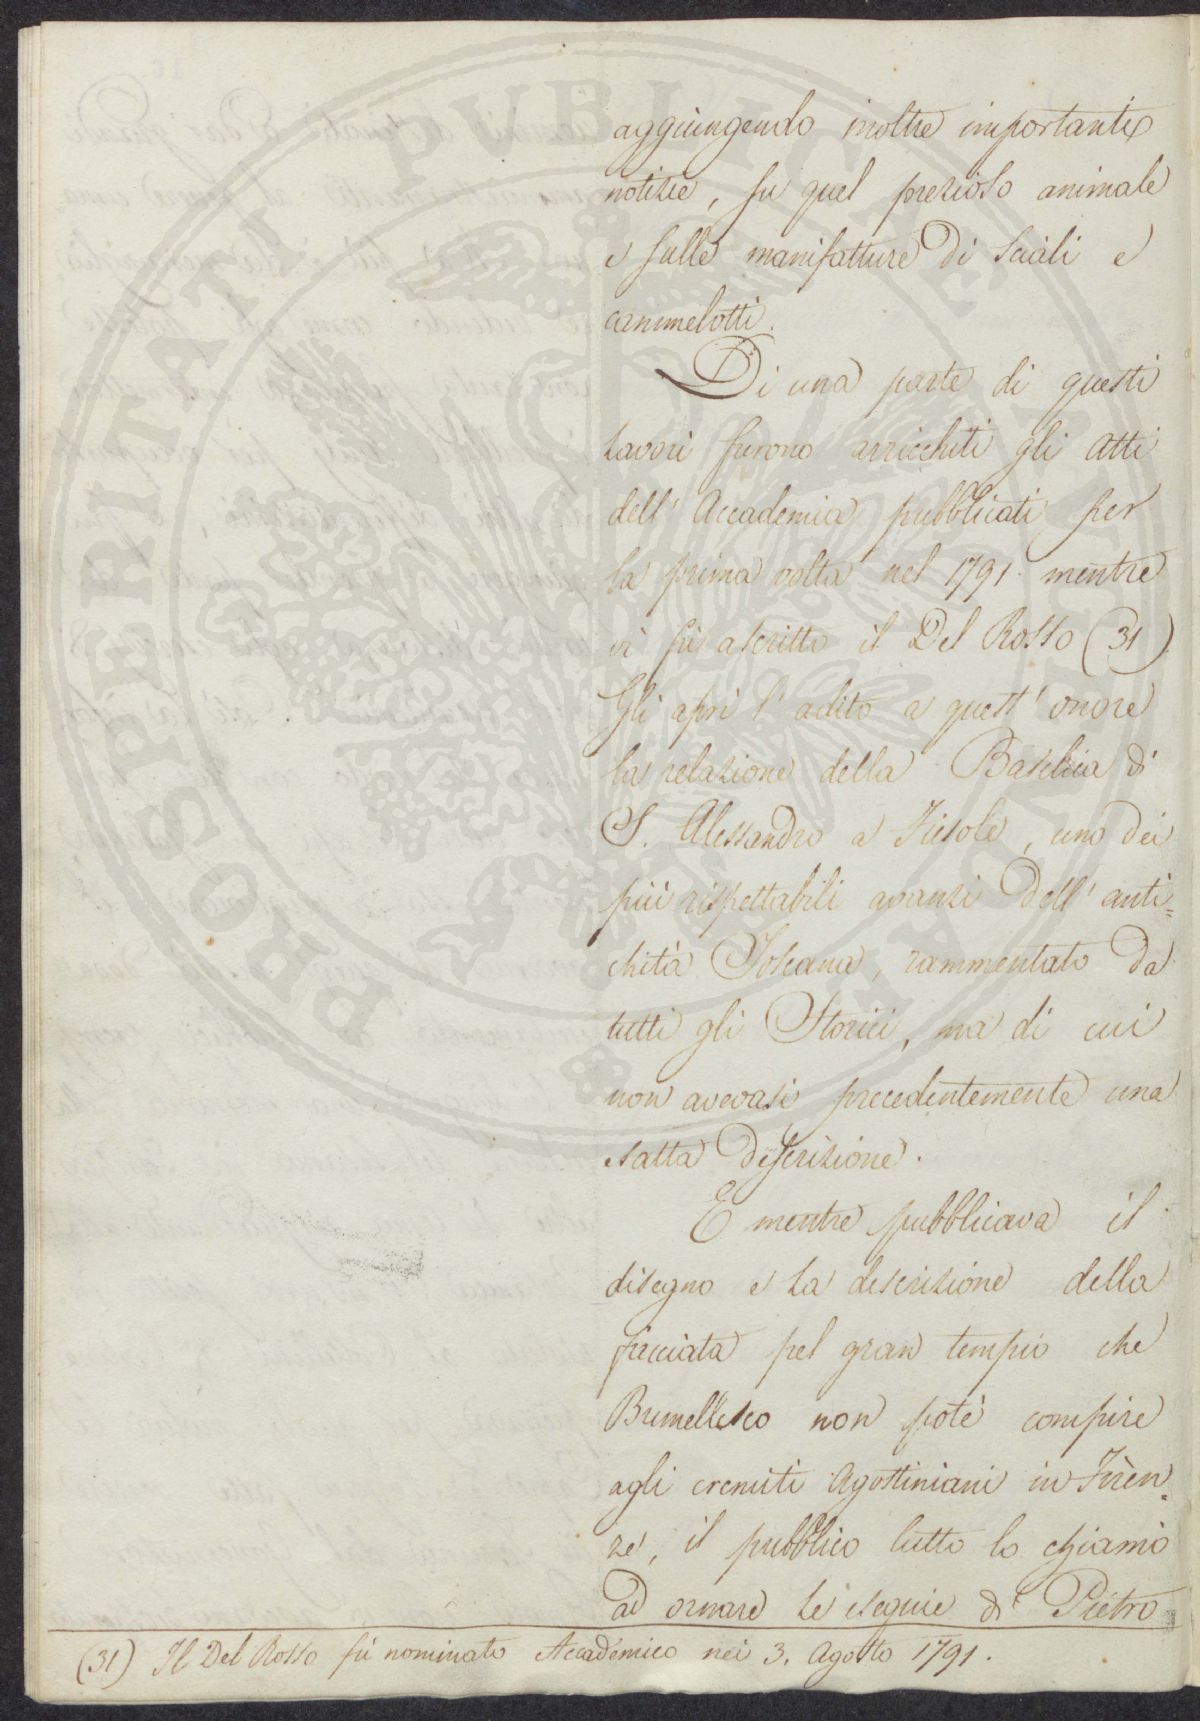 aggiungendo inoltre importanti
notizie, su quel prezioso animale
e sulle manifatture di Sciàli e
cammelotti.
Di una parte di questi
lavori furono arricchiti gli Atti
dell' Accademia pubblicati per
la prima volta nel 1791. mentre
vi fù ascritto il Del Rosso (31)
Gli aprì l' adito a quest' onore
la relazione della Basilica di
S. Alessandro a Fiesole, uno dei
più rispettabili avanzi dell' anti=
chità Toscana, rammentato da
tutti gli Storici, ma di cui
non avevasi precedentemente una
esatta descrizione.
E mentre pubblicava il
disegno e la descrizione della
facciata pel gran tempio che
Brunellesco non potè compire
agli eremiti Agostiniani in Firen=
ze, il pubblico lutto lo chiamò
ad ornare le esequie di Pietro
(31) Il Del Rosso fù nominato Accadémico nei 3. Agosto 1791.
PROSPERITATI PUBLICAE AUGENDAE